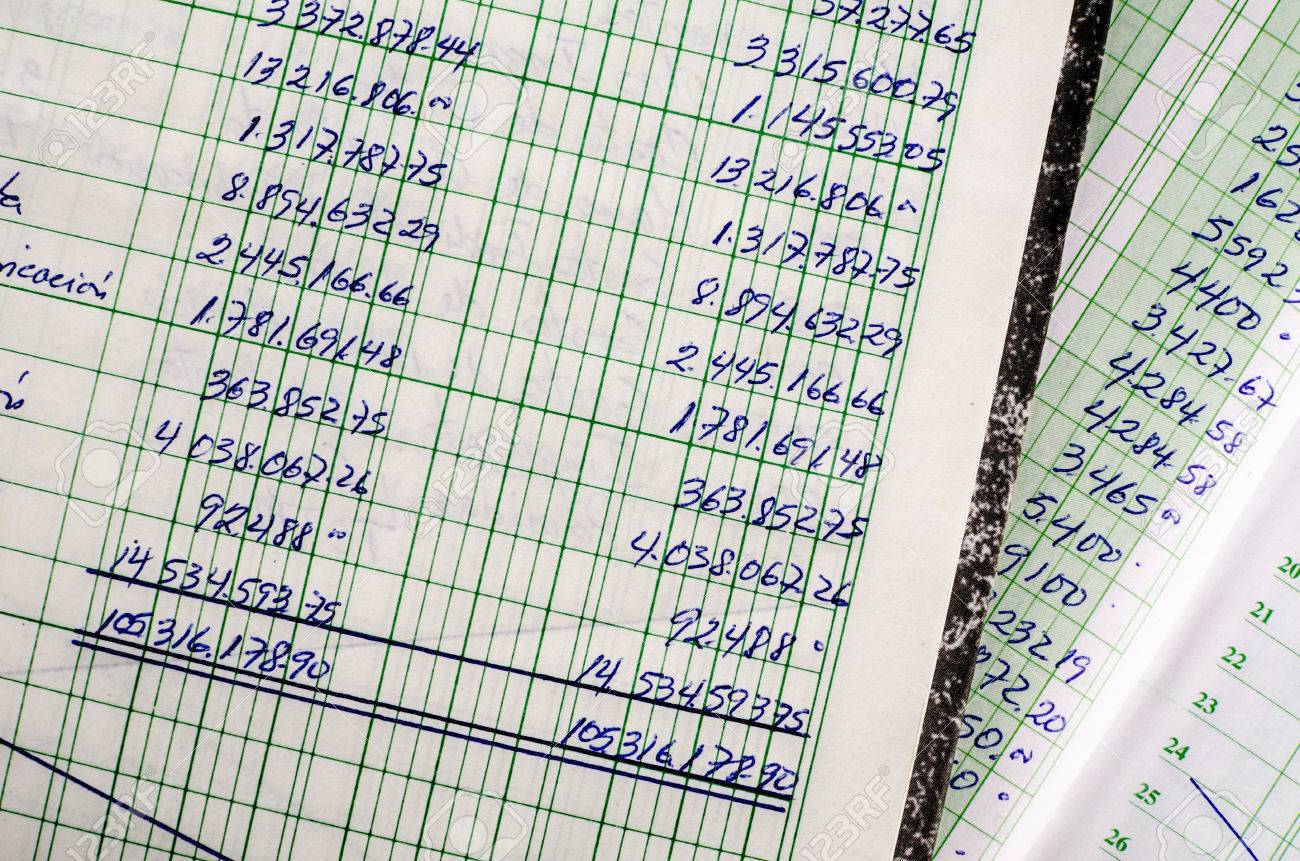 37.277.65
3 372.878.44 3 315.600.79
13 216.806. ~ 1.145 553.05
1.317.787.75 13 216.806. ~
8.894.632 29 1.317.787.75
2 445.166.66 8.894.632 29
icación 1.781.691.48 2.445.166 66
363.852.75 1.781.691.48
4 038.067.26 363.852 75
92.488 ~ 4.038.067.26
14 534.593 75 92488
105 316.178.90 14 534.593 75
105 316.178.90
4400
3.427.67
4.284.58
4.284.58
3465 ~
5.400.
9100
232 19
972.20
50. ~
20
21
22
23
24
25
26
123RF